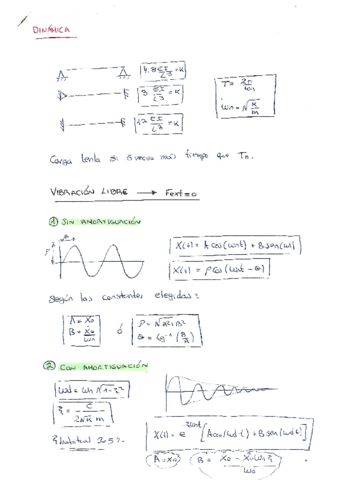 DINÁMICA
48 EI/L³ = K
3 EI/L³ = K
12 EI/L³ = K
T = 2π/ωn
ωn = √(K/m)
Carga lenta si 5 veces más tiempo que Tn.
VIBRACIÓN LIBRE → Fext = 0
① SIN AMORTIGUACIÓN
X(t) = A cos(ωnt) + B sen(ωt)
X(t) = ρ cos(ωnt - θ)
Según las constantes elegidas:
A = X₀
ó
ρ = √A²+B²
② CON AMORTIGUACIÓN
ωd = ωn √1-ξ²
ξ = C/2√K m
[A cos(ωd t) + B sen(ωd t)]
A = X₀